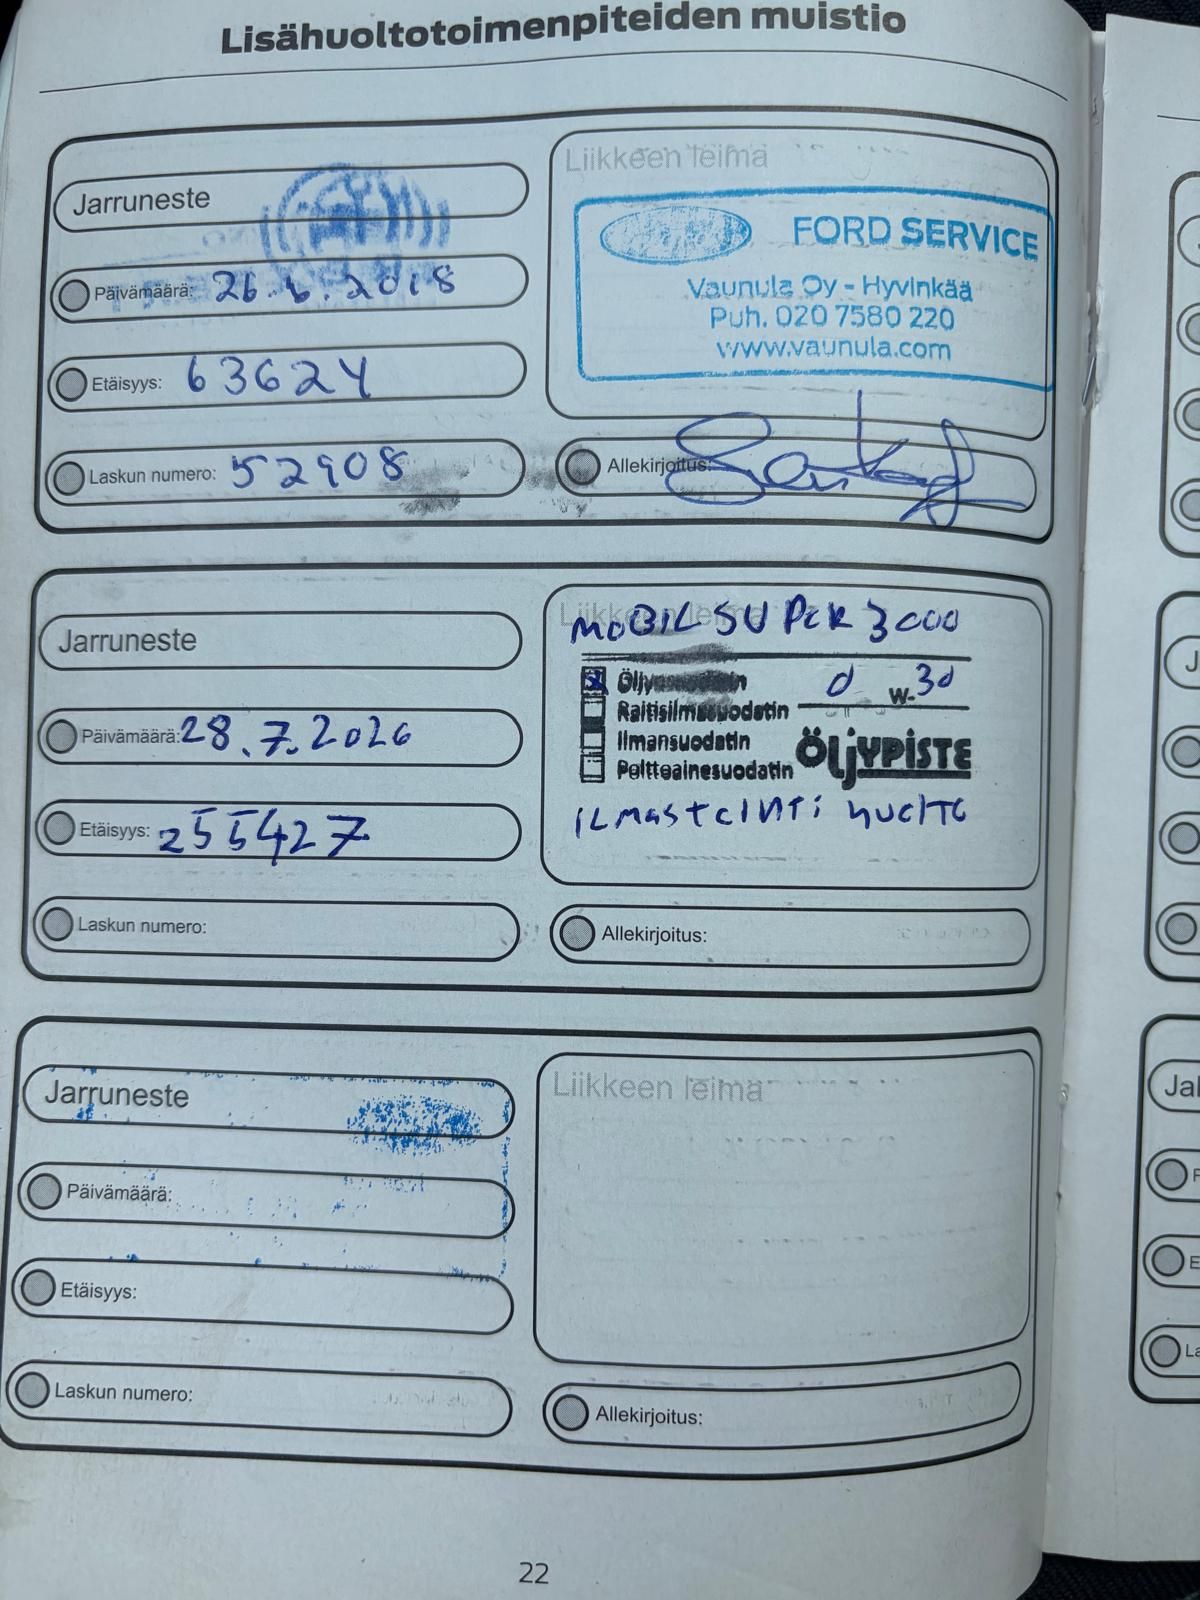 Lisähuoltotoimenpiteiden muistio
Jarruneste
Päivämäärä: 26.6.2018
Etäisyys: 63624
Laskun numero: 52908
Liikkeen leima
FORD SERVICE
Vaunula Oy - Hyvinkää
Puh. 020 7580 220
www.vaunula.com
Allekirjoitus:
Jarruneste
Päivämäärä: 28.7.2026
Etäisyys: 255427
Laskun numero:
Liikkeen leima
MOBIL SUPER 3000
Öljynsuodatin 0 W-30
Raitisilmasuodatin
Ilmansuodatin
Polttoainesuodatin
ÖljYPISTE
ILMASTOINTI HUOLTO
Allekirjoitus:
Jarruneste
Päivämäärä:
Etäisyys:
Laskun numero:
Liikkeen leima
Allekirjoitus:
22